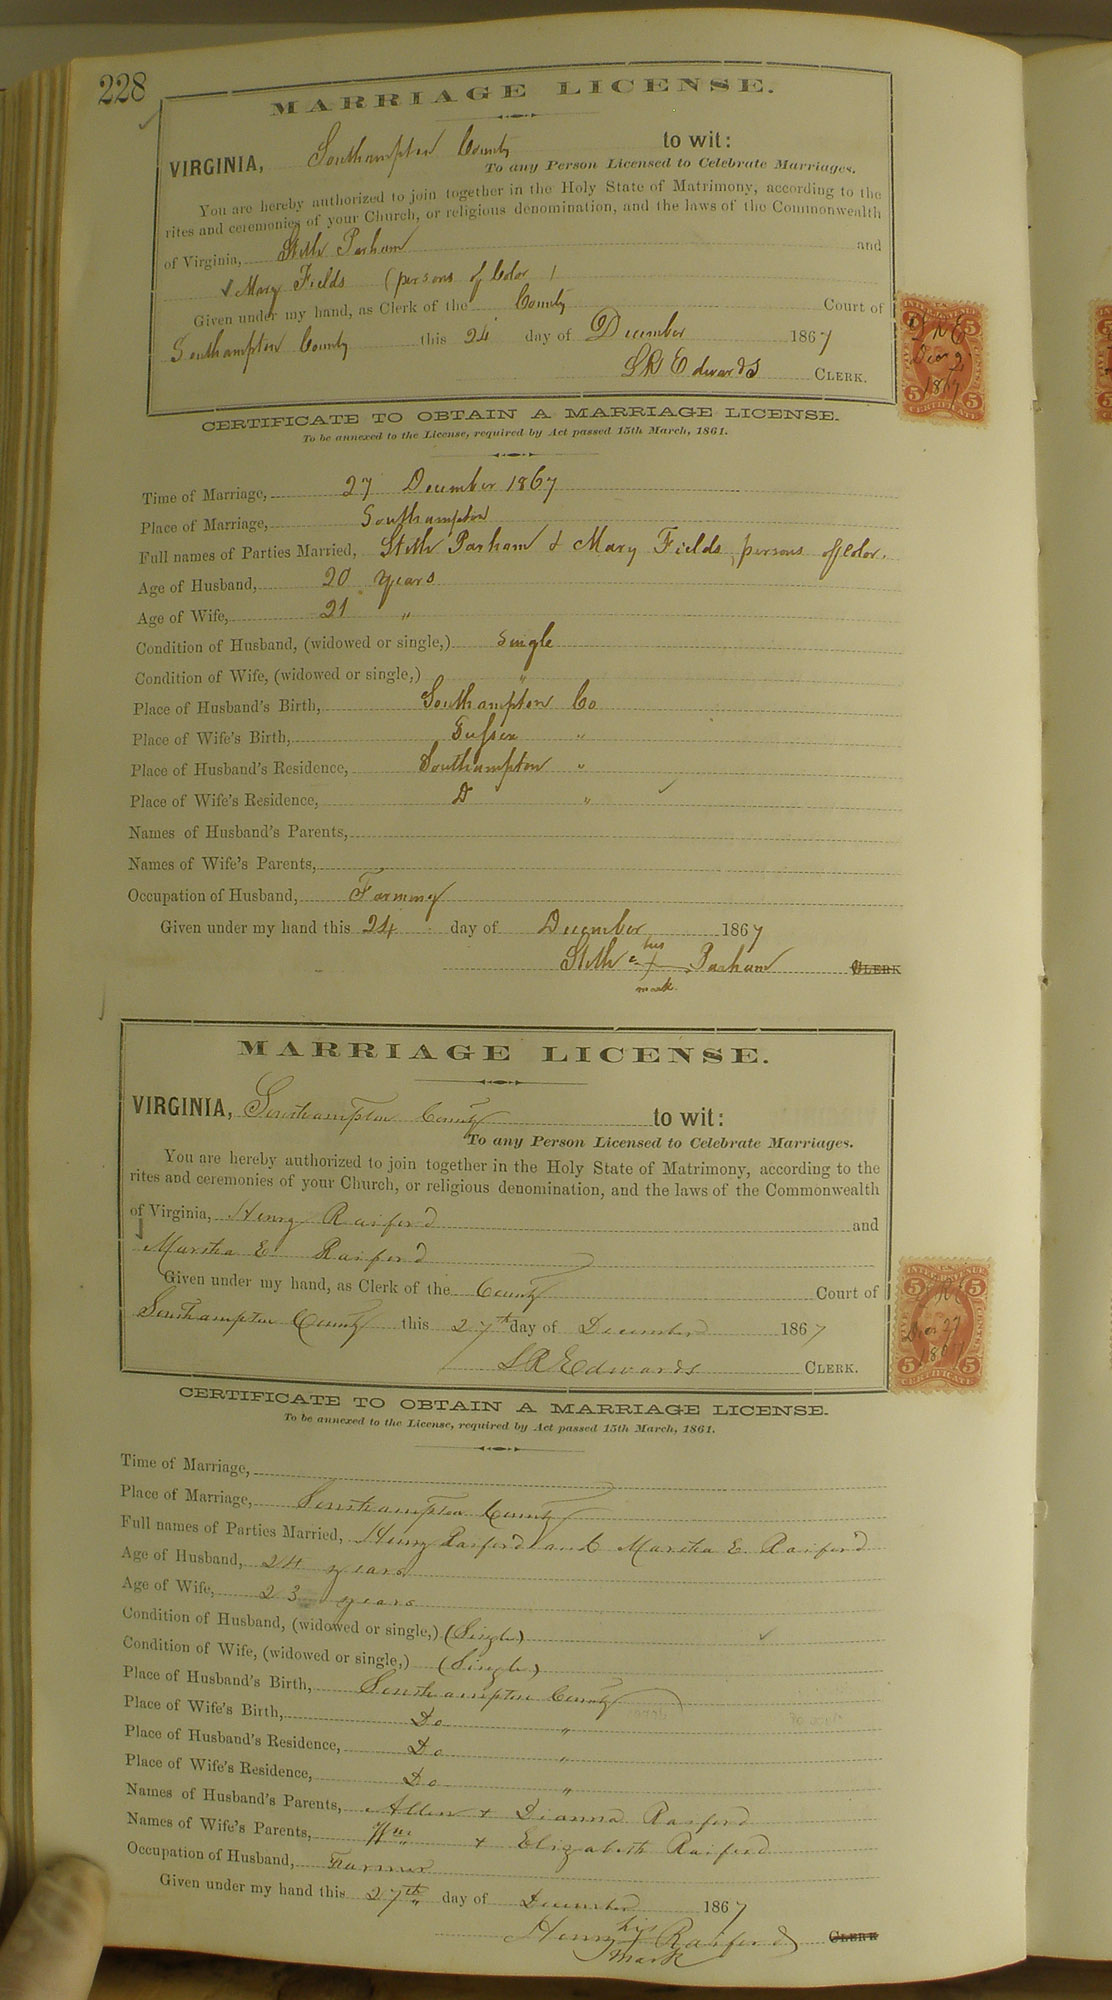 228
MARRIAGE LICENSE.
VIRGINIA, Southampton County to wit:
To any Person Licensed to Celebrate Marriages.
You are hereby authorized to join together in the Holy State of Matrimony, according to the
rites and ceremonies of your Church, or religious denomination, and the laws of the Commonwealth
of Virginia, Stith Parham and
Mary Fields (persons of Color)
Given under my hand, as Clerk of the County Court of
Southampton County this 24 day of December 1867
LREdwards CLERK.
CERTIFICATE TO OBTAIN A MARRIAGE LICENSE.
To be annexed to the License, required by Act passed 15th March, 1861.
Time of Marriage, 27 December 1867
Place of Marriage, Southampton
Full names of Parties Married, Stith Parham & Mary Fields persons of Color.
Age of Husband, 20 years
Age of Wife, 21 "
Condition of Husband, (widowed or single,) Single
Condition of Wife, (widowed or single,) "
Place of Husband's Birth, Southampton Co
Place of Wife's Birth, Sussex "
Place of Husband's Residence, Southampton "
Place of Wife's Residence, D "
Names of Husband's Parents,
Names of Wife's Parents,
Occupation of Husband, Farming
Given under my hand this 24 day of December 1867
his
Stith X Parham CLERK
mark.
MARRIAGE LICENSE.
VIRGINIA, Southampton County to wit:
To any Person Licensed to Celebrate Marriages.
You are hereby authorized to join together in the Holy State of Matrimony, according to the
rites and ceremonies of your Church, or religious denomination, and the laws of the Commonwealth
of Virginia, Henry Raiford and
Martha E. Raiford
Given under my hand, as Clerk of the County Court of
Southampton County this 27th day of December 1867
LREdwards CLERK.
INTER. REVENUE
5 5
LRE
Dec 27
1867
5 5
CERTIFICATE
CERTIFICATE TO OBTAIN A MARRIAGE LICENSE.
To be annexed to the License, required by Act passed 15th March, 1861.
Time of Marriage,
Place of Marriage, Southampton County
Full names of Parties Married, Henry Raiford and Martha E. Raiford
Age of Husband, 24 years
Age of Wife, 23 years
Condition of Husband, (widowed or single,) (Single)
Condition of Wife, (widowed or single,) (Single)
Place of Husband's Birth, Southampton County
Place of Wife's Birth, Do "
Place of Husband's Residence, Do "
Place of Wife's Residence, Do "
Names of Husband's Parents, Allen + Dianna Raiford
Names of Wife's Parents, Wm + Elizabeth Raiford
Occupation of Husband, Farmer
Given under my hand this 27th day of December 1867
his
Henry X Raiford CLERK
mark